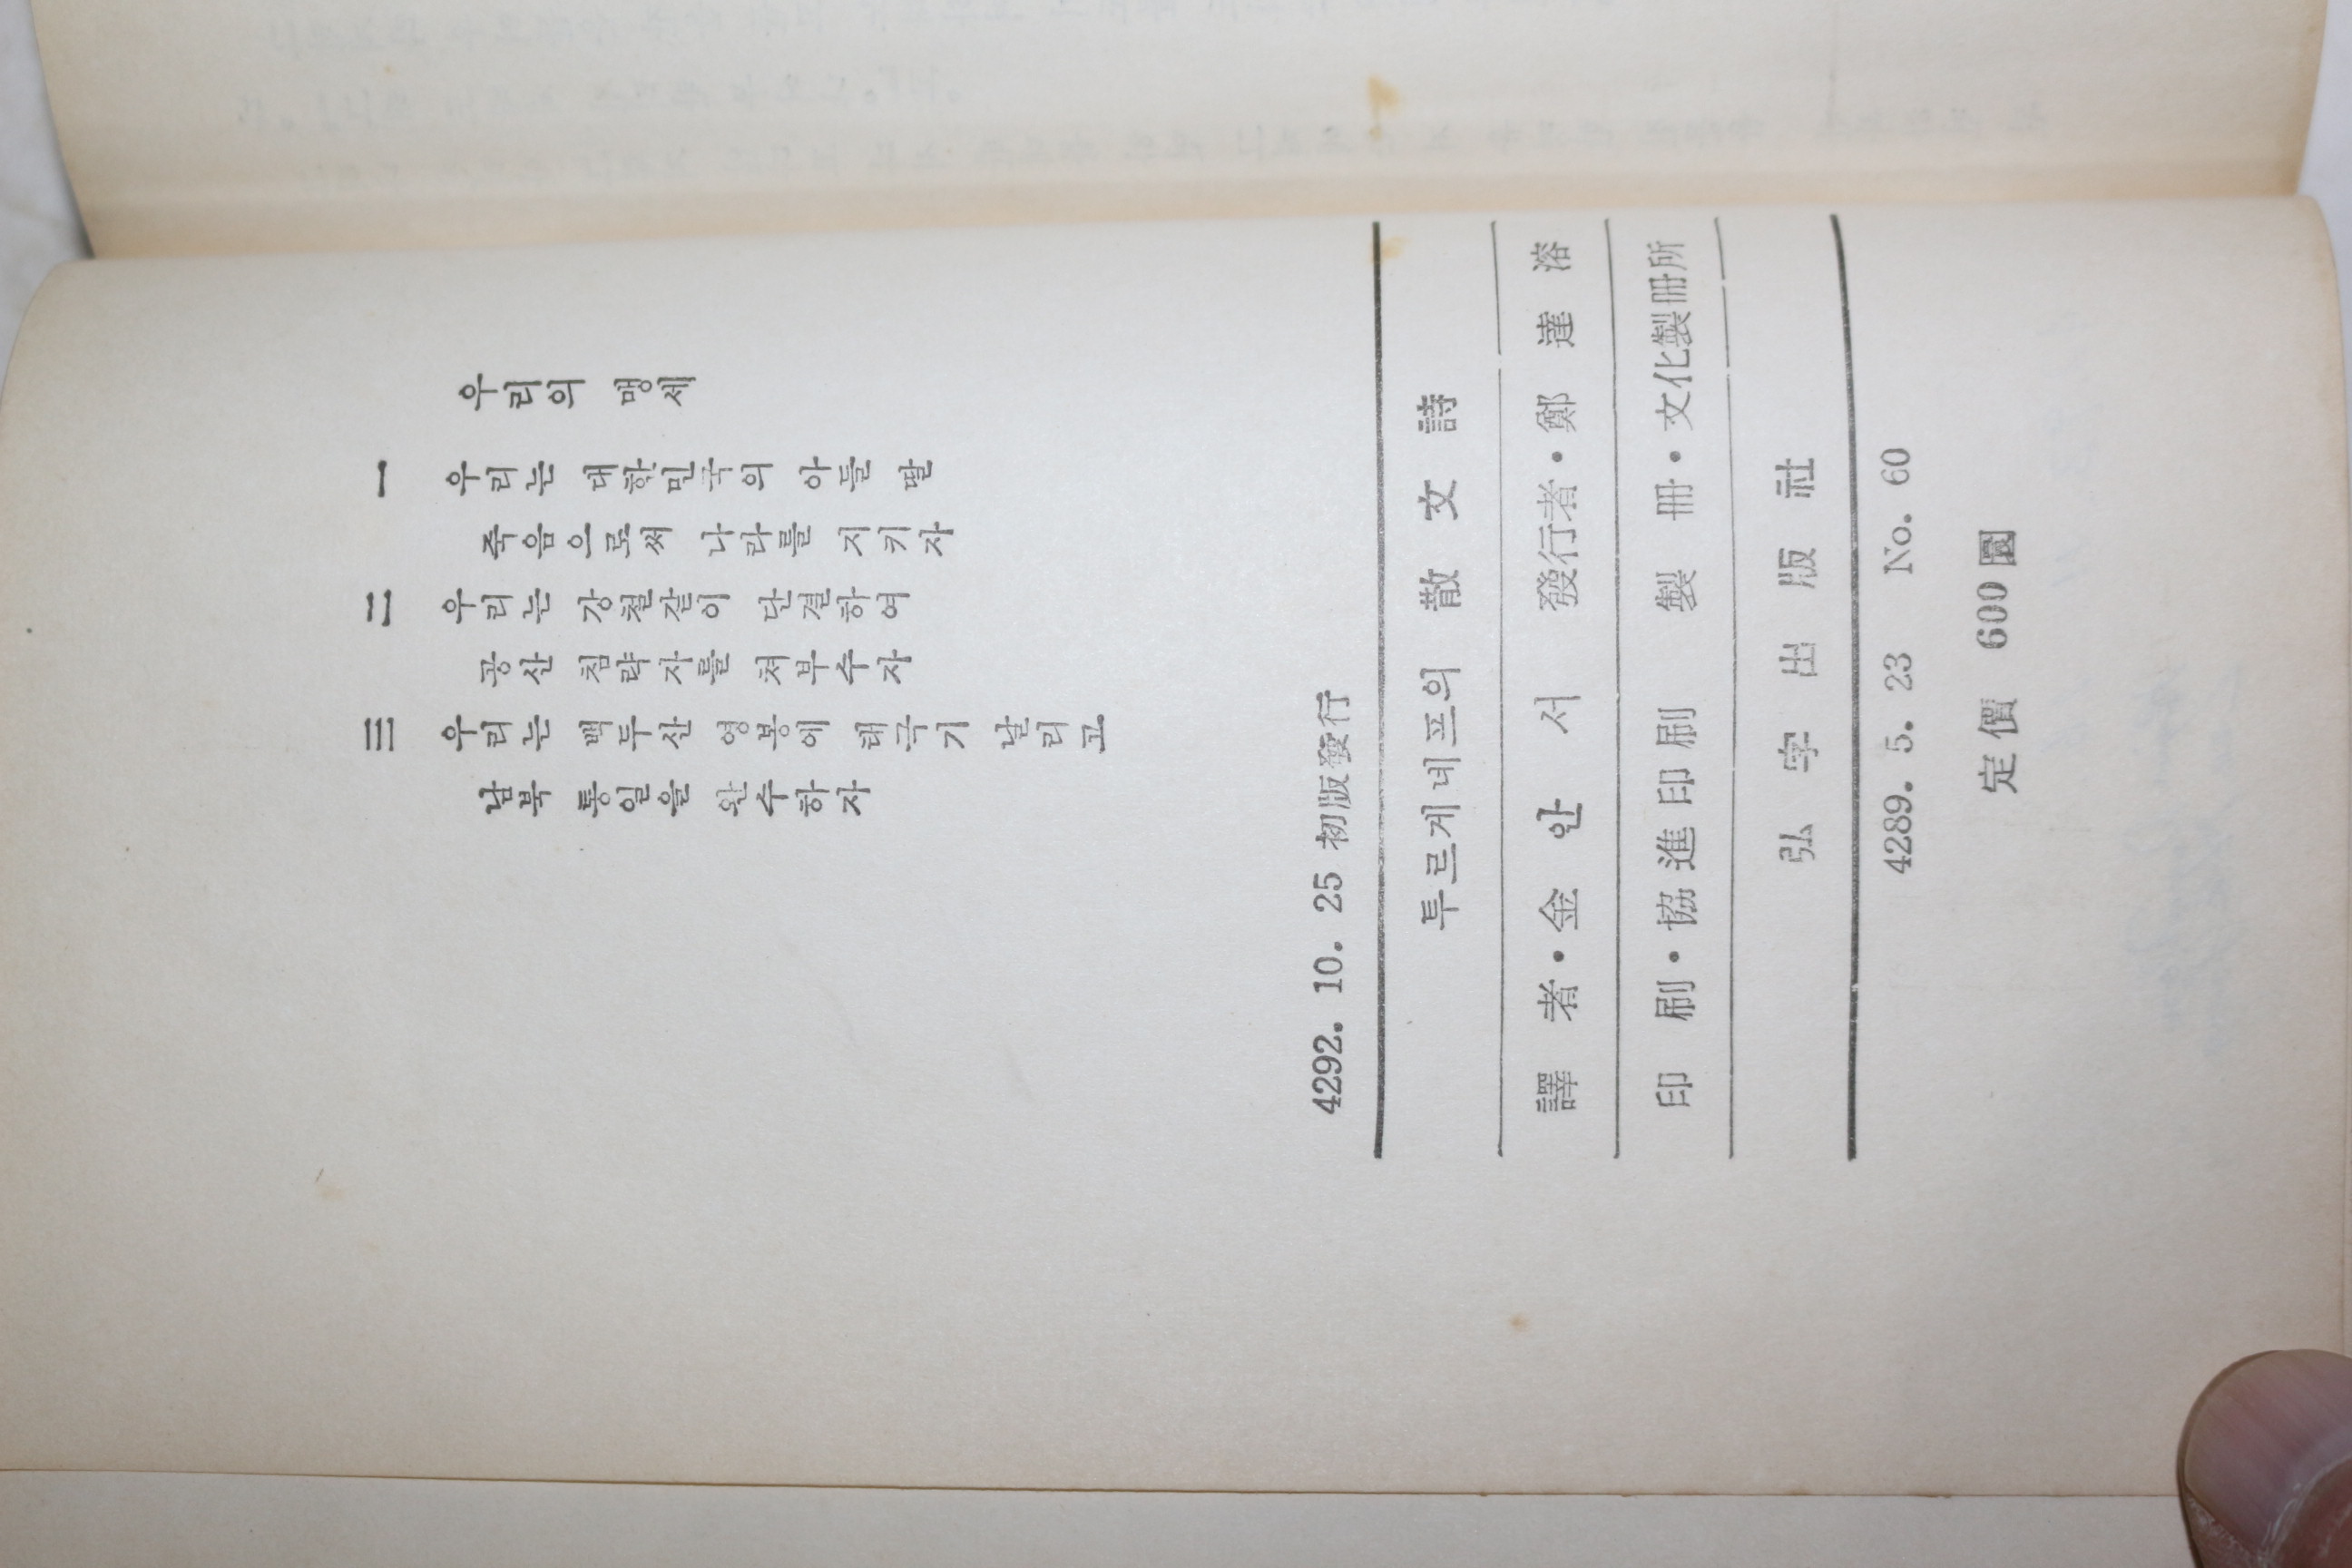 우리의 맹세
一 우리는 대한민국의 아들 딸
죽음으로써 나라를 지키자
二 우리는 강철같이 단결하여
공산 침략자를 쳐부수자
三 우리는 백두산 영봉에 태극기 날리고
남북 통일을 완수하자
4292. 10. 25 初版發行
투르게네프의 散文詩
譯者・金안서 發行者・鄭達溶
印刷・協進印刷 製冊・文化製冊所
弘字出版社
4289. 5. 23 No. 60
定價 600圜